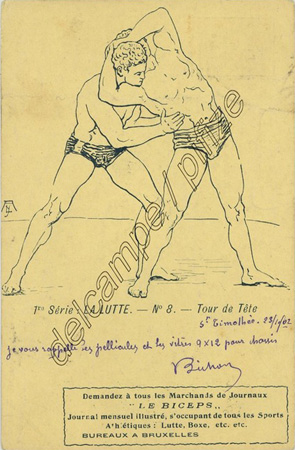 1re Série : LA LUTTE. — No 8. — Tour de Tête
St Timothée. 23/1/02
je vous rappelle les pellicules et les vitres 9x12 pour
delcampe / prize
Demandez à tous les Marchands de Journaux
"LE BICEPS„
Journal mensuel illustré, s'occupant de tous les Sports
Athlétiques : Lutte, Boxe, etc. etc.
BUREAUX A BRUXELLES